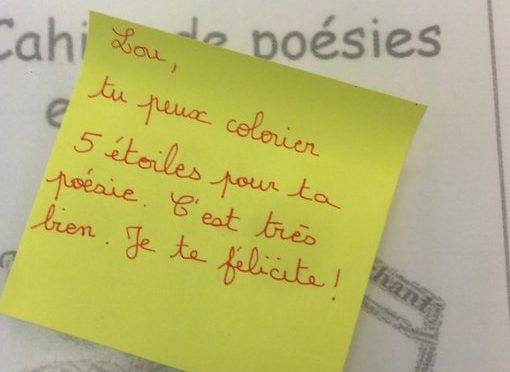 Cahier de poésies
e
Lou,
tu peux colorier
5 étoiles pour ta
poésie. C'est très
bien. Je te félicite !
chant